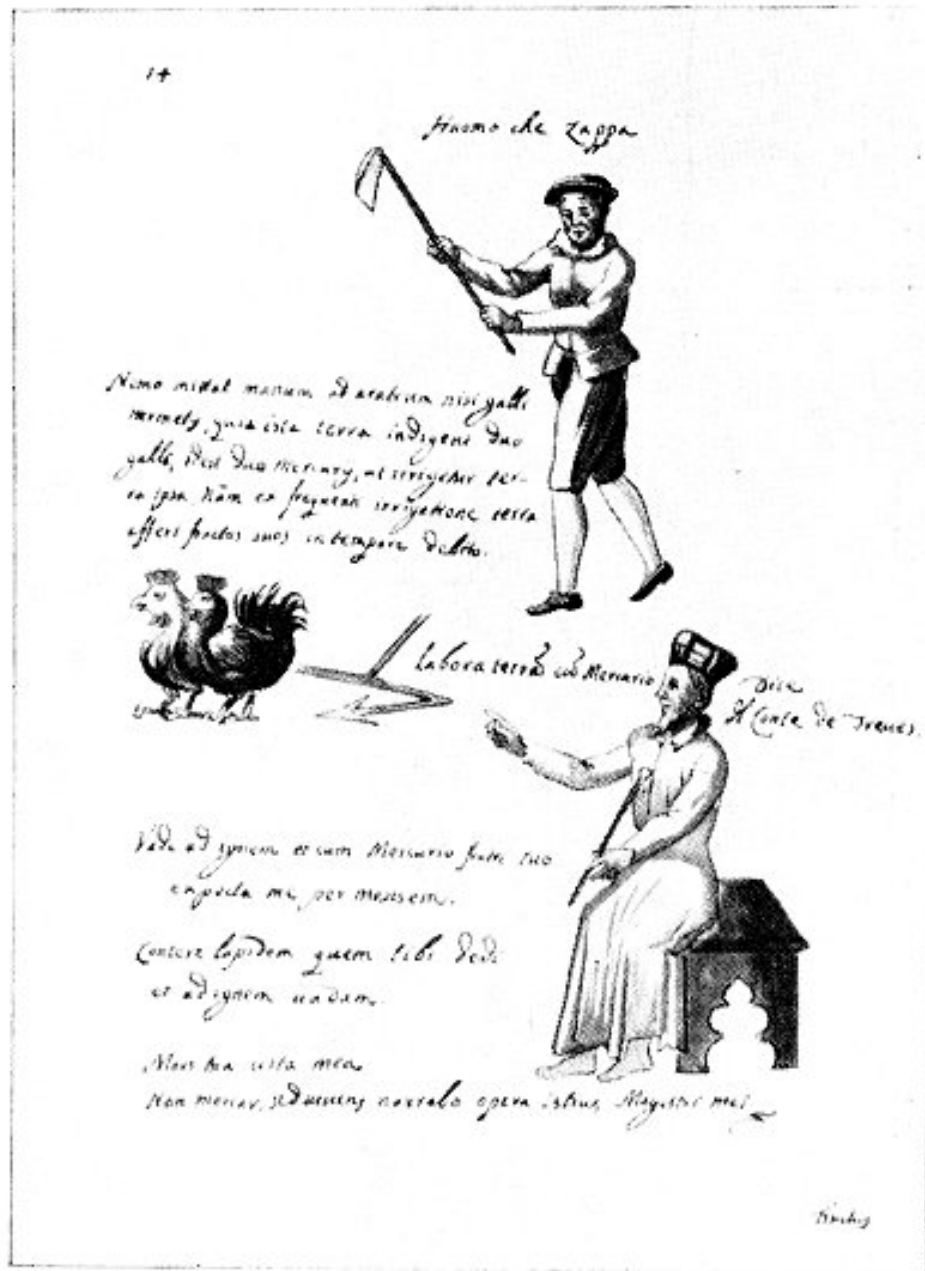 14
Huomo che zappa
Nemo mittat manum ad aratrum nisi galli
Hermetis, quia ista terra indigent duo
galli, idest duo Mercurij, ut irrigetur ter-
ra ipsa. Nam ex frequenti irrigatione terra
affert fructus suos in tempore debito.
Labora terrã cũ Mercurio
Dice
il Conte de Treues.
Vade ad ignem et cum Mercurio fratre tuo
copula me per mensem.
Contere lapidem quem tibi dedi
et ad ignem uadam.
Mors tua uita mea
Non moriar, sed uiuens narrabo opera istius Magistri mei